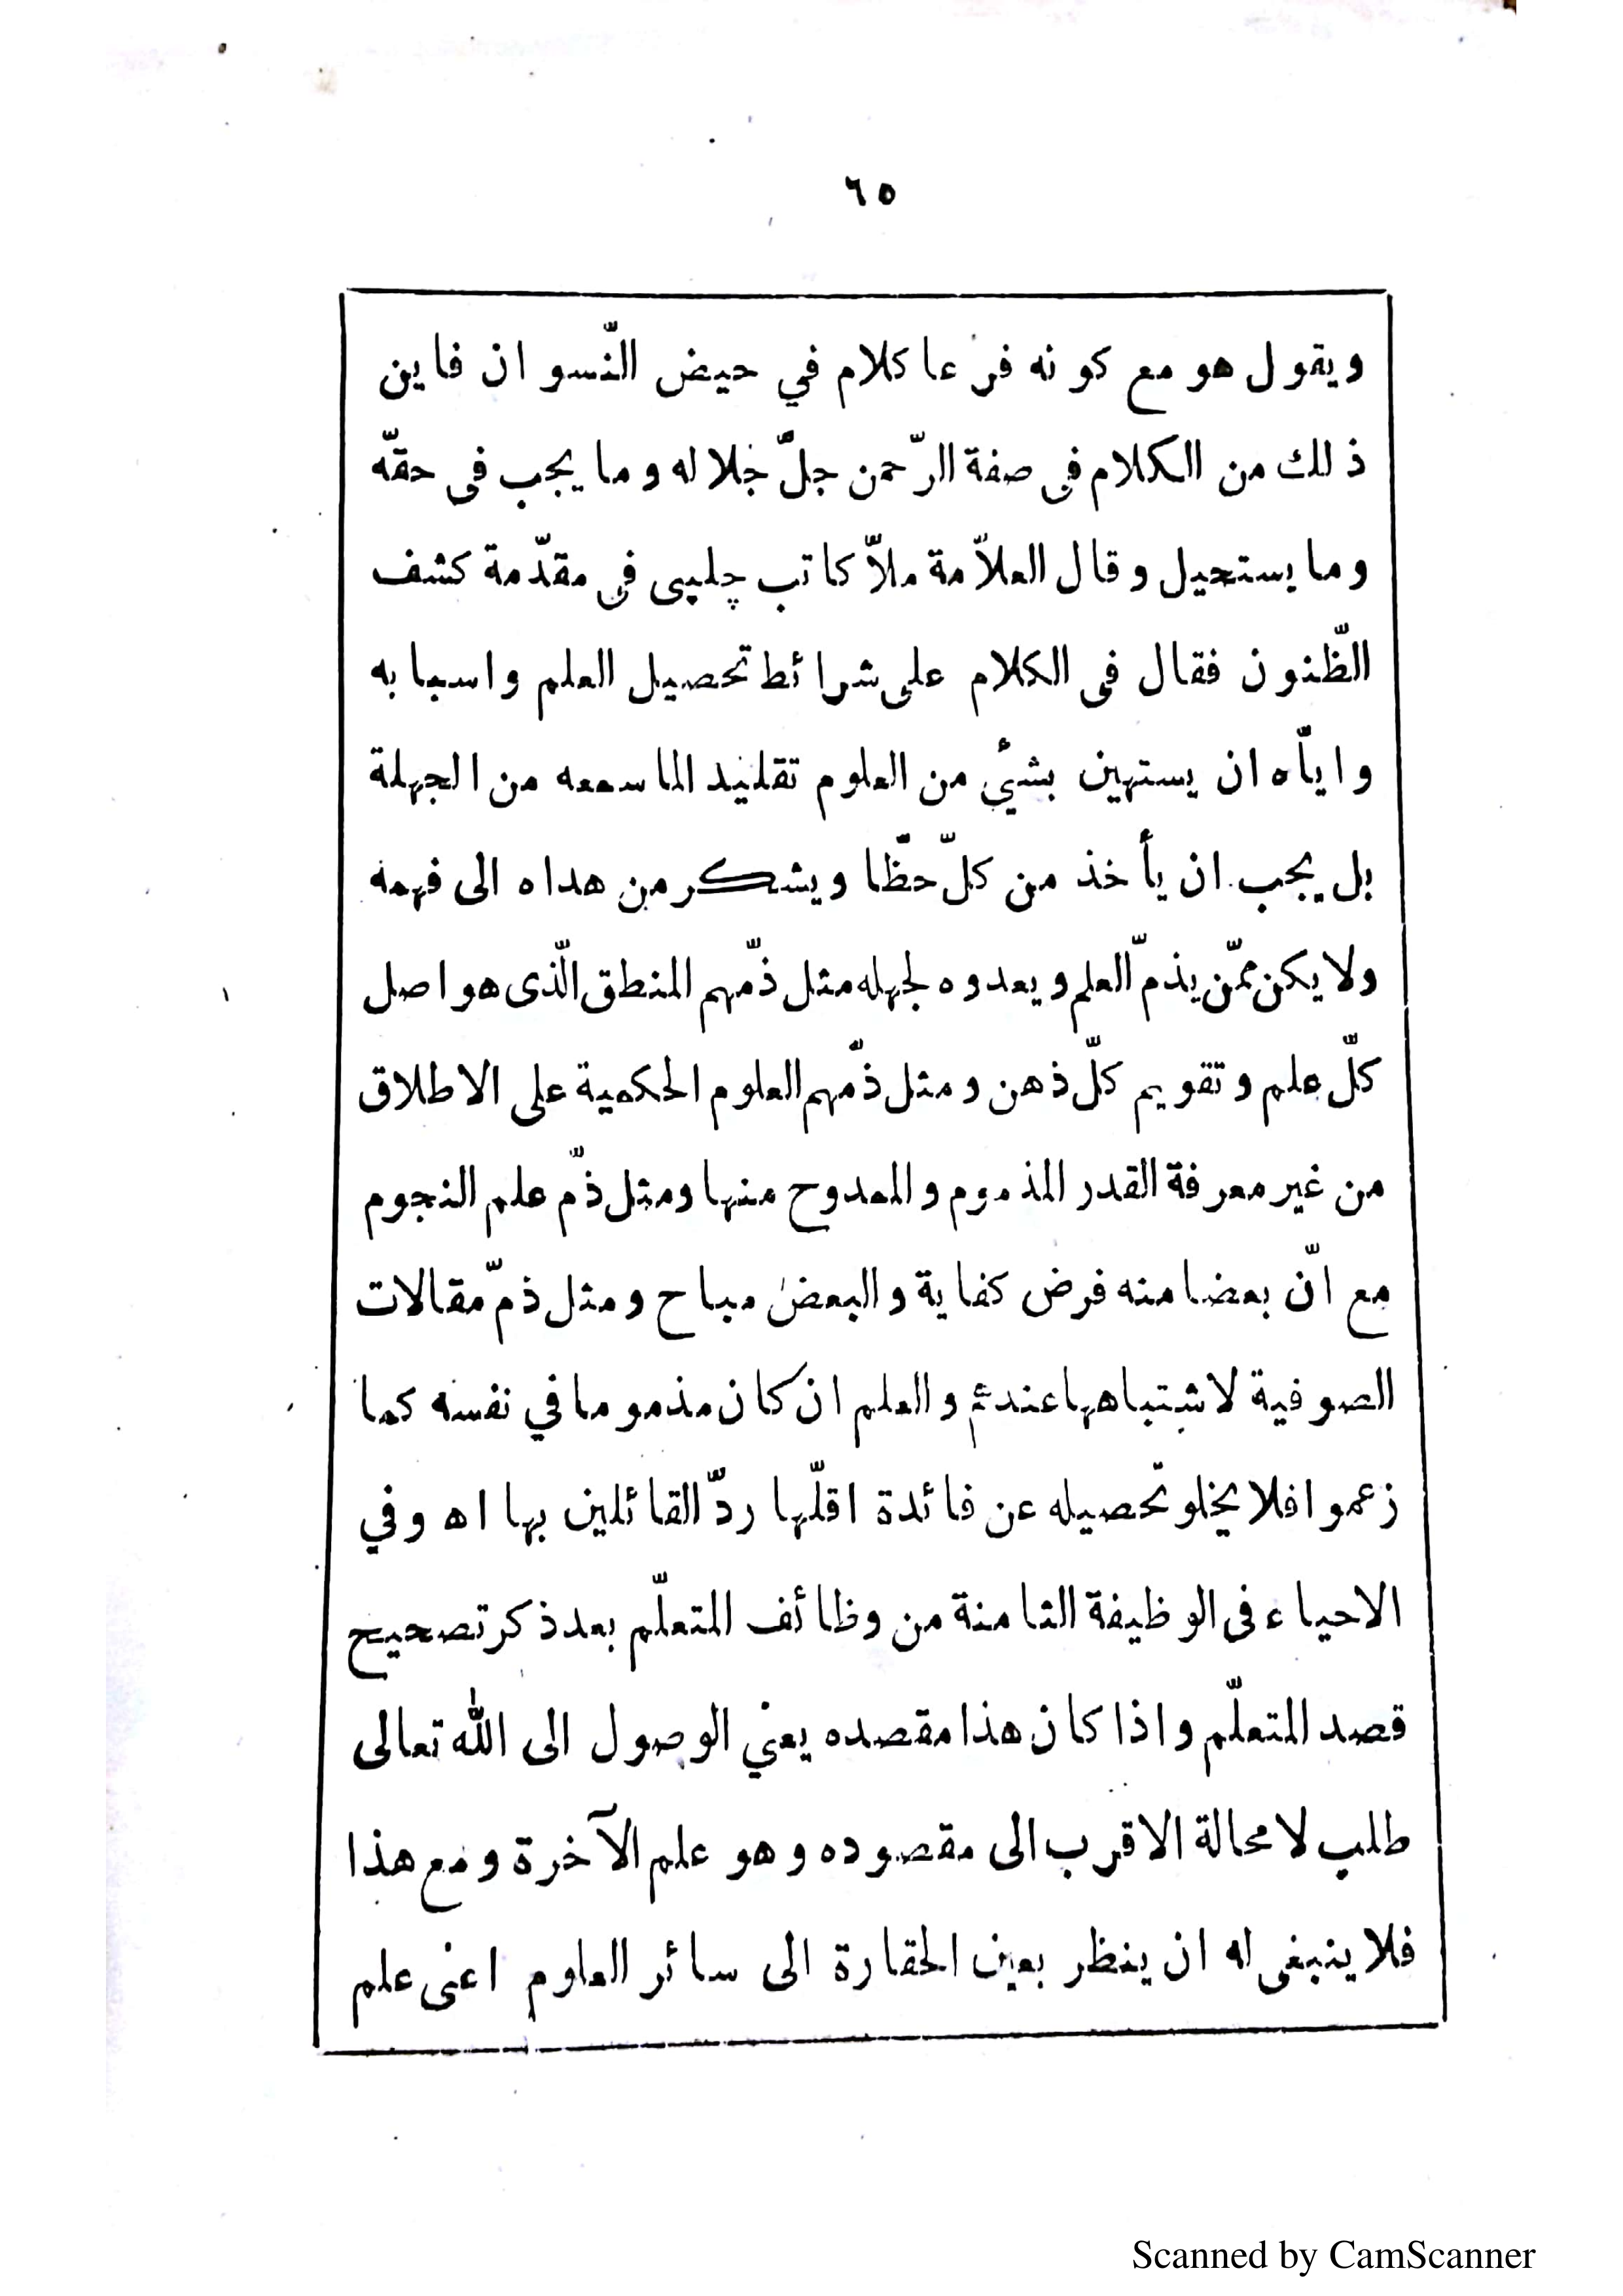 ٦٥
ويقول هو مع كونه فرعا كلام في حيض النّسوان فاين
ذلك من الكلام فى صفة الرّحمن جلّ جلاله وما يجب فى حقّه
وما يستحيل وقال العلاّمة ملاّ كاتب چلپى فى مقدّمة كشف
الظّنون فقال فى الكلام على شرائط تحصيل العلم واسبابه
واياّه ان يستهين بشئ من العلوم تقليدا لما سمعه من الجهلة
بل يجب ان يأخذ من كلّ حظّا ويشكر من هداه الى فهمه
ولا يكن ممّن يذمّ العلم ويعدوه لجهله مثل ذمّهم المنطق الّذى هو اصل
كلّ علم وتقويم كلّ ذهن ومثل ذمّهم العلوم الحكمية على الاطلاق
من غير معرفة القدر المذموم والممدوح منها ومثل ذمّ علم النجوم
مع انّ بعضا منه فرض كفاية والبعض مباح ومثل ذمّ مقالات
الصوفية لاشتباهها عندهم والعلم ان كان مذموما في نفسه كما
زعموا فلا يخلو تحصيله عن فائدة اقلّها ردّ القائلين بها اه وفي
الاحياء فى الوظيفة الثامنة من وظائف المتعلّم بعد ذكر تصحيح
قصد المتعلّم واذا كان هذا مقصده يعني الوصول الى الله تعالى
طلب لا محالة الاقرب الى مقصوده وهو علم الآخرة ومع هذا
فلا ينبغى له ان ينظر بعين الحقارة الى سائر العلوم اعنى علم
Scanned by CamScanner